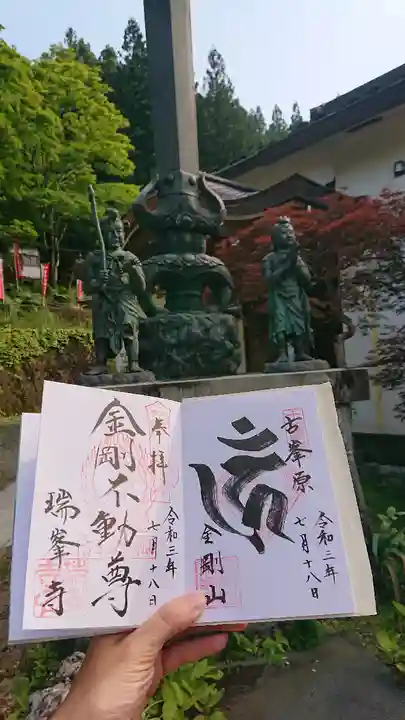 古峯原
令和三年
七月十八日
金剛山
奉拝
令和三年
七月十八日
金剛不動尊
瑞峯寺